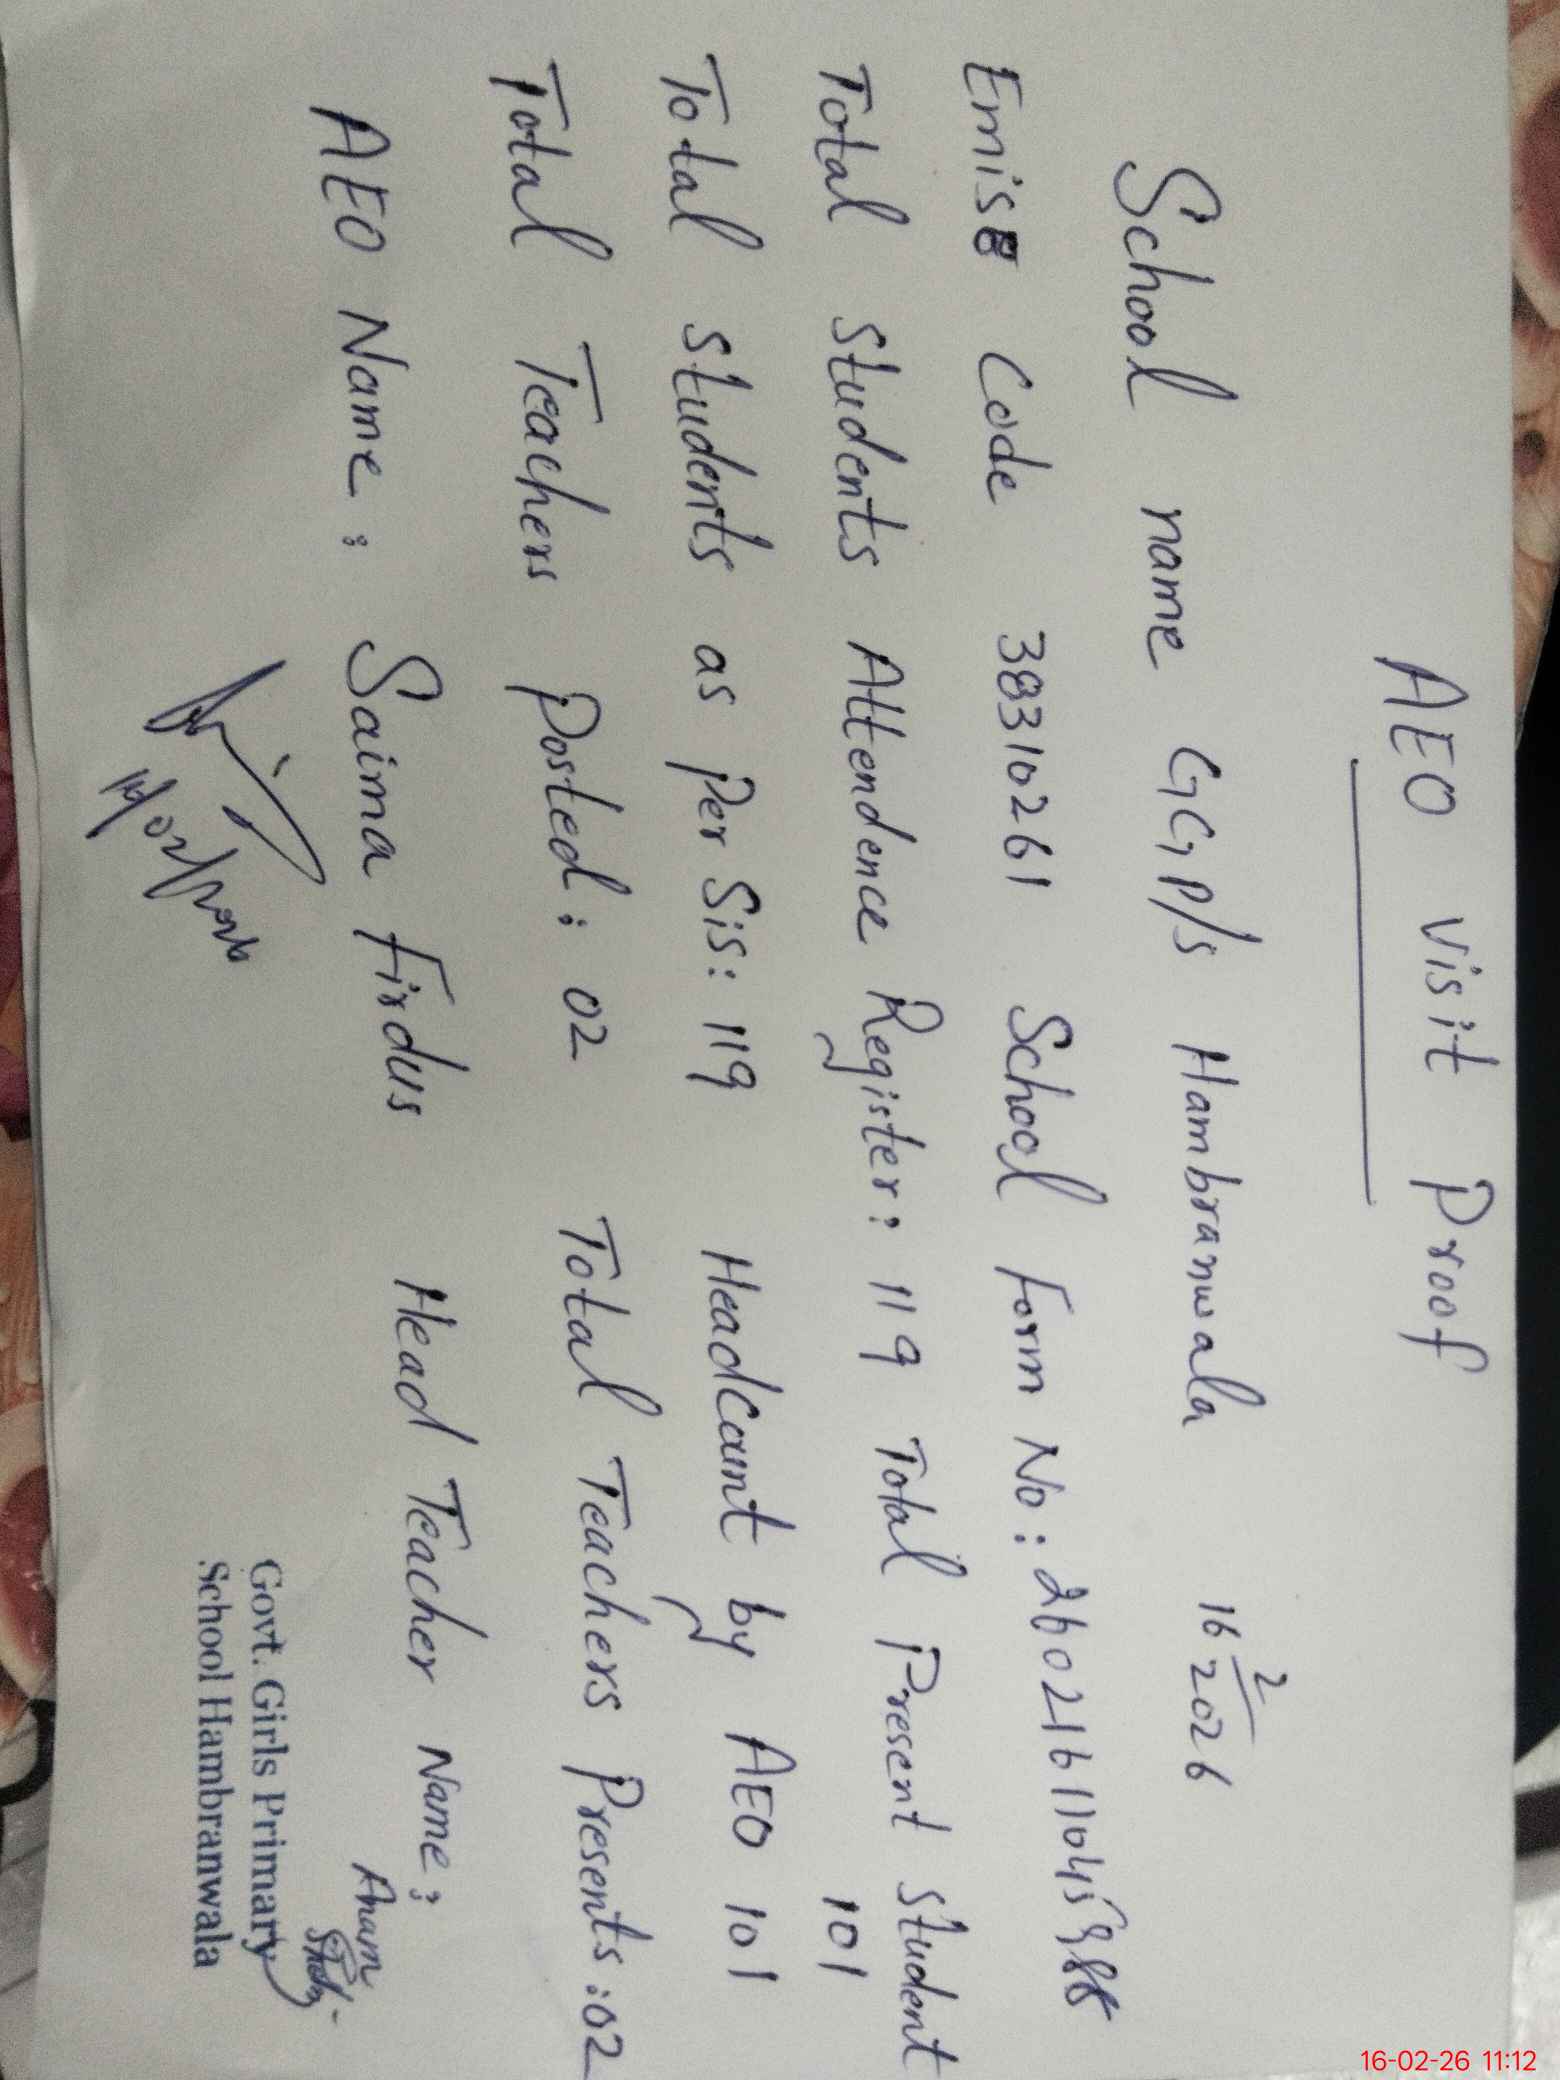 AEO Visit Proof
School name GGP/s Hambranwala 16 2/2026
Emis Code 38310261 School Form No: 260216110459
Total Students Attendence Register: 119 Total Present Student 101
Total Students as Per Sis: 119 Headcount by AEO 101
Total Teachers Posted: 02 Total Teachers Presents: 02
AEO Name: Saima Firdus Head Teacher Name: Anam
Govt. Girls Primary
School Hambranwala
16-02-26 11:12